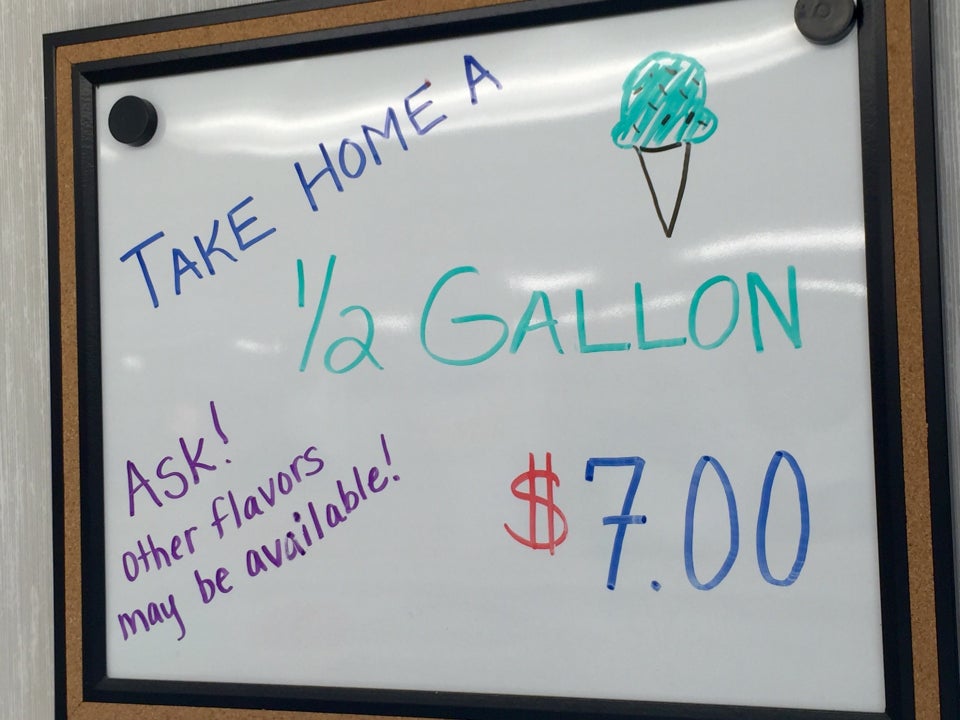 TAKE HOME A
1/2 GALLON
ASK!
other flavors
may be available!
$7.00